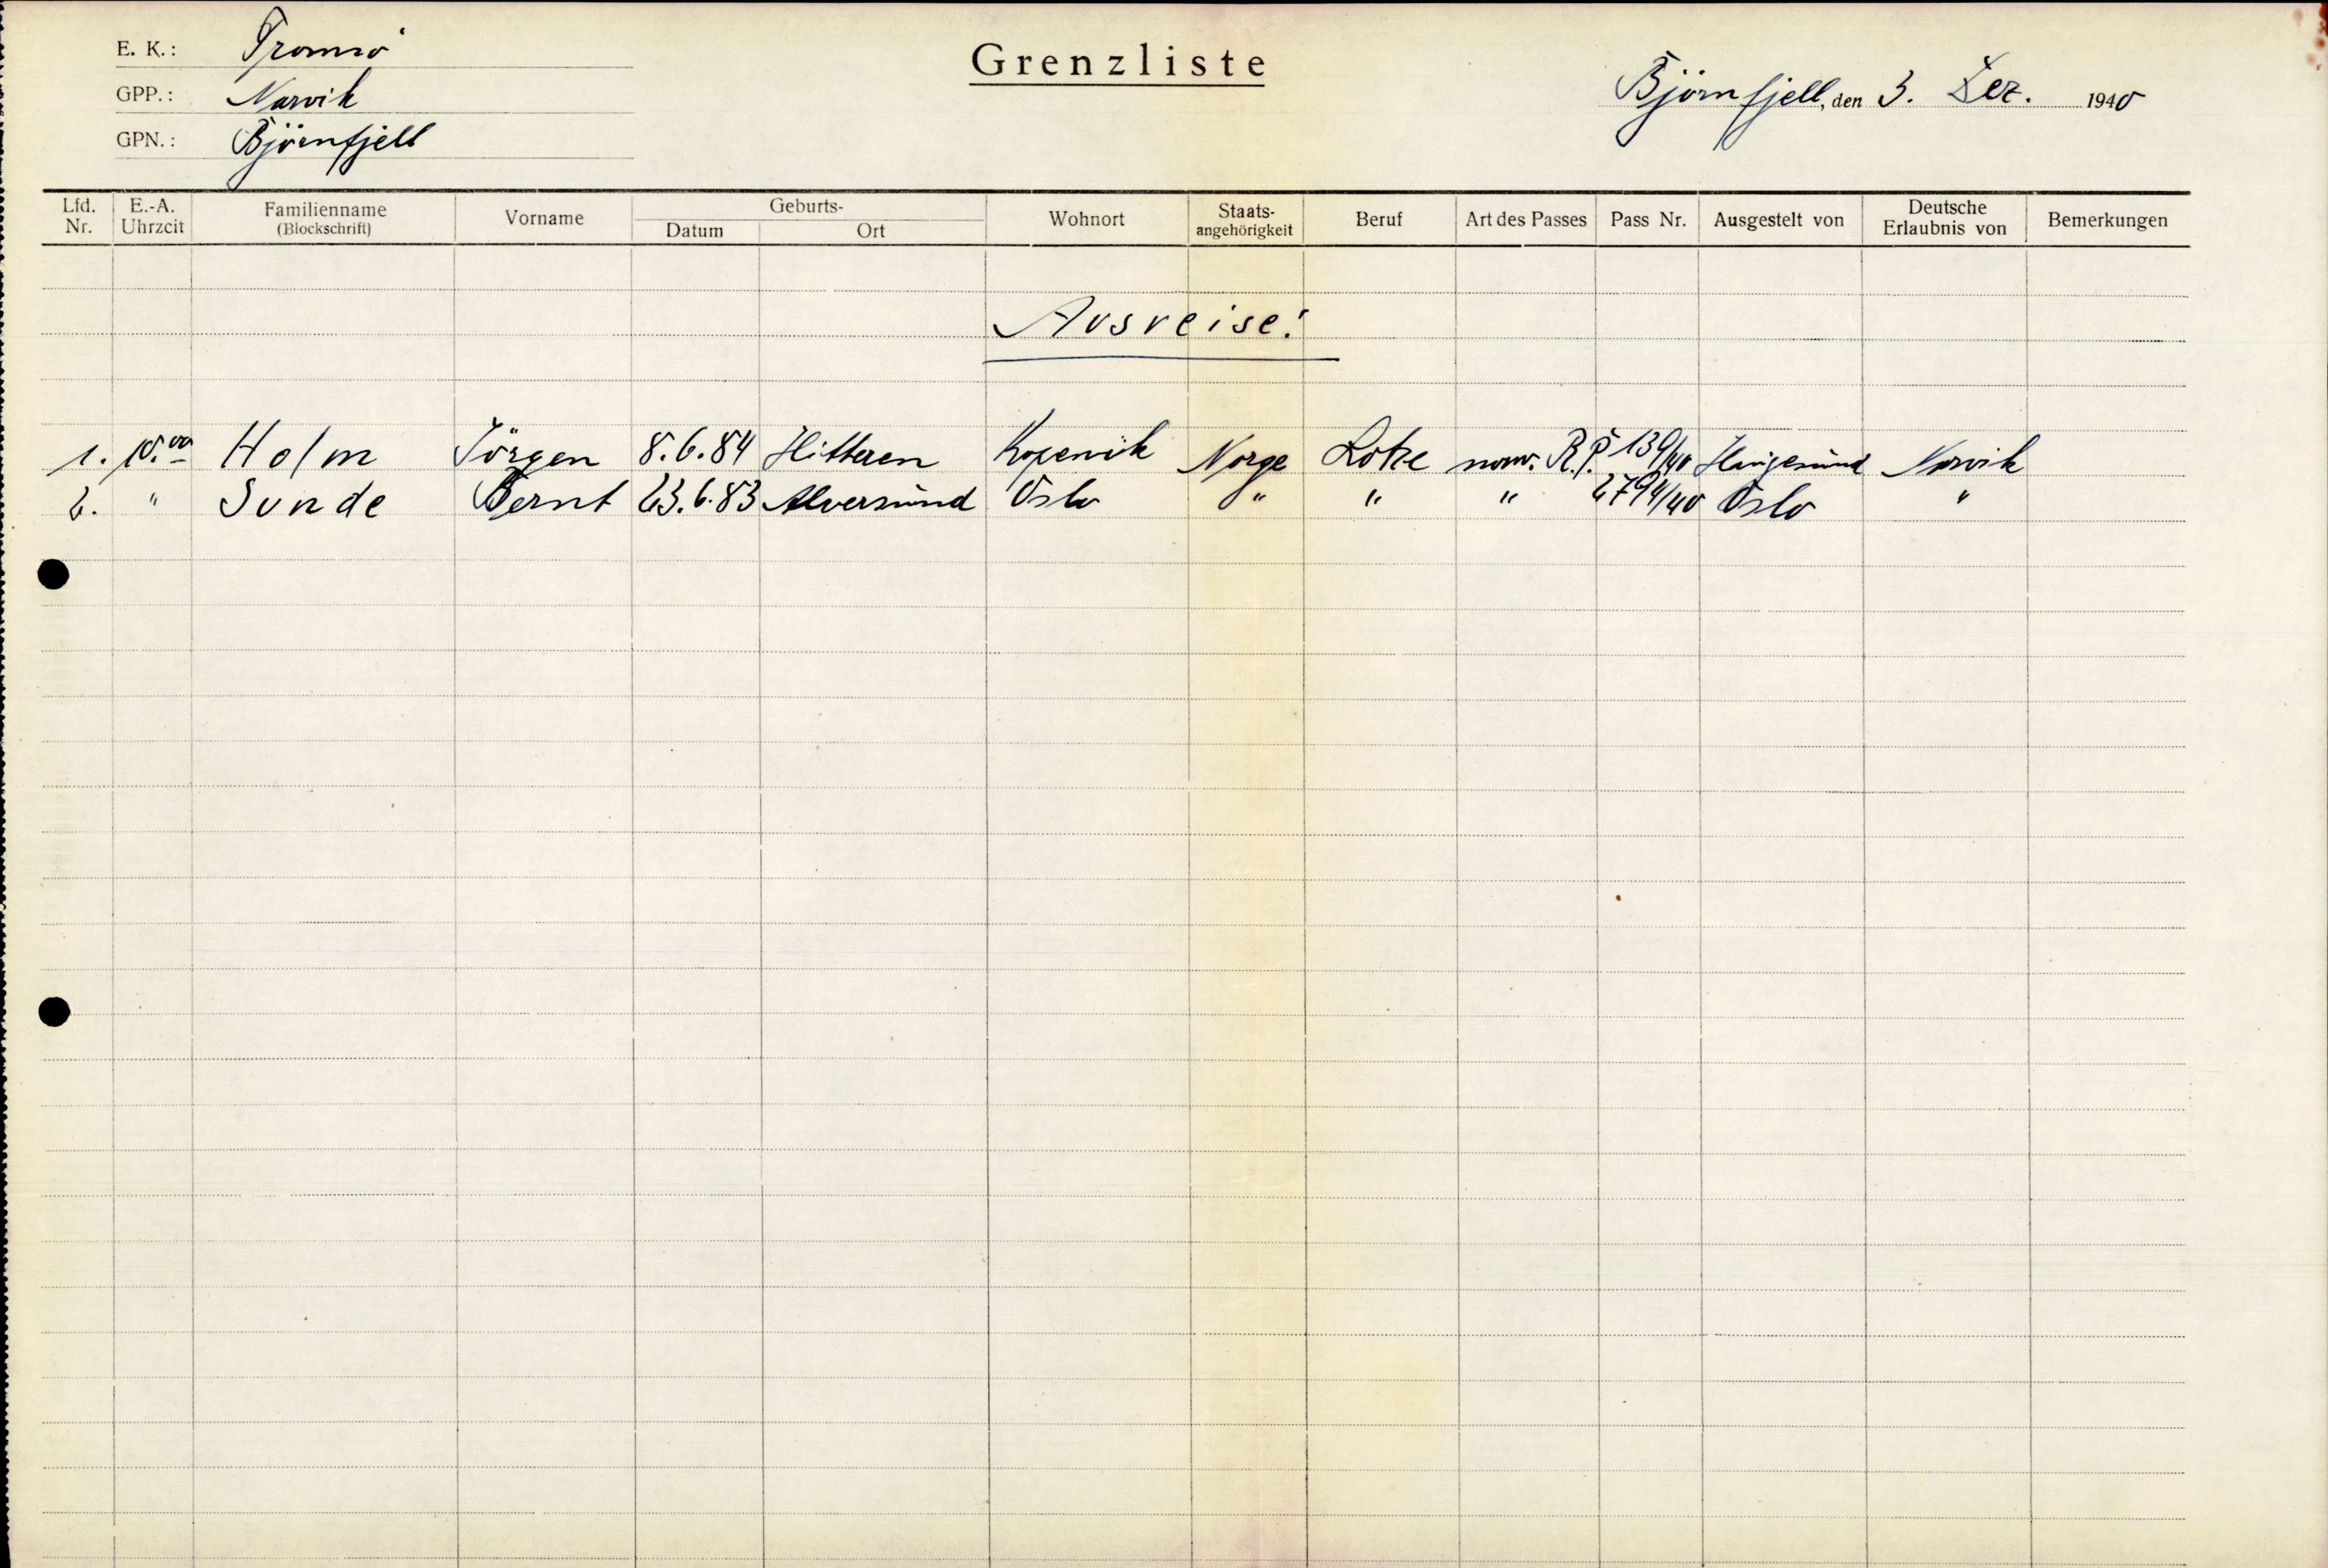 E. K.: Tromsö
GPP.: Narvik
GPN.: Björnfjell
Grenzliste
Björnfjell, den 3. Dez. 1940
Lfd. Nr. E.-A. Uhrzeit Familienname (Blockschrift) Vorname Geburts- Datum Ort Wohnort Staats-angehörigkeit Beruf Art des Passes Pass Nr. Ausgestelt von Deutsche Erlaubnis von Bemerkungen
Ausreise:
1. 10.00 Holm Jörgen 8.6.84 Hitteren Kopervik Norge Lotse norw. R.P. 139/40 Haugesund Narvik
2. " Sunde Bernt 23.6.83 Alversund Oslo " " " 2794/40 Oslo "